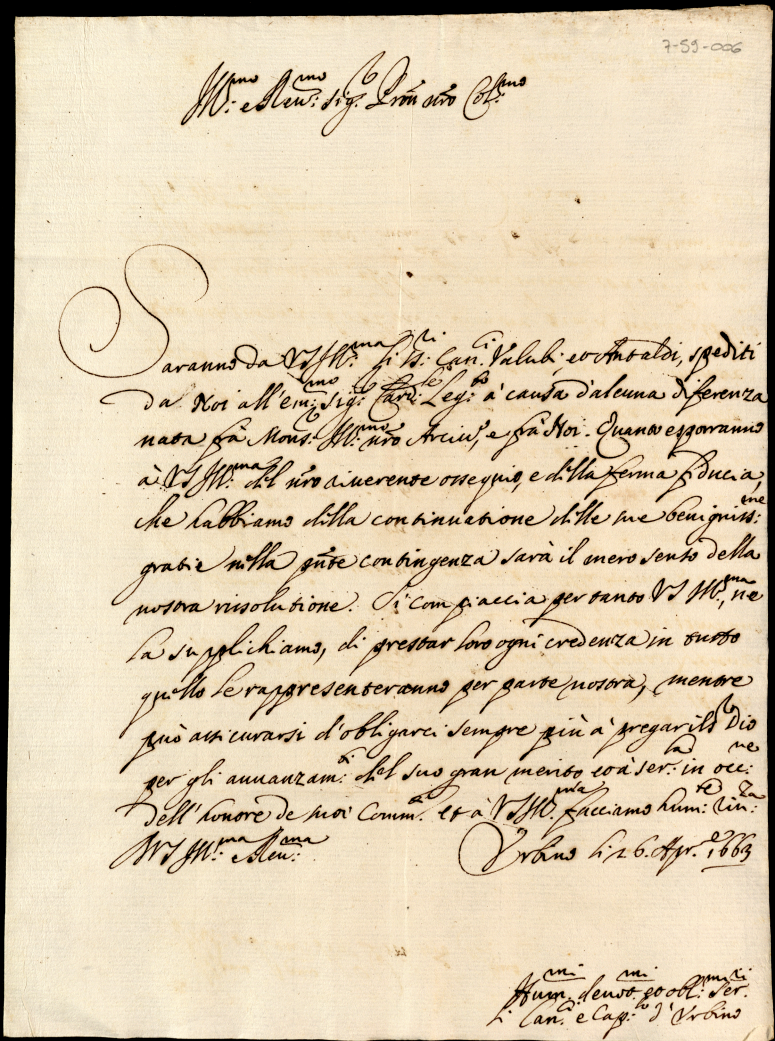 7-59-006
Ill.mo e Reu.mo Sig.r Pron nro Col.mo
Saranno da VS Ill.ma li SS.ri Can.ci Valubi, et Antaldi, spediti
da Noi all'em.mo Sig.r Card.le Leg.to à causa d'alcuna diferenza
nata frà Mons.r Ill.mo nro Arciu.o, e frà Noi. Quanto esporranno
à VS Ill.ma del nro riuerente ossequio, e della ferma fiducia,
che habbiamo della continuatione delle sue benigniss.me
gratie nella pnte contingenza sarà il mero senso della
nostra rissolutione. Si compiaccia per tanto VS Ill.ma, ne
la supplichiamo, di prestar loro ogni credenza in tutto
quello le rappresenteranno per parte nostra, mentre
può assicurarsi d'obligarci sempre più à pregarle Dio
per gli auuanzam.ti del suo gran merito et à ser.la in occ.ne
dell'honore de suoi Comm.di et à VS Ill.ma facciamo hum.te riu.za
Di VS Ill.ma e Reu.ma
Vrbino li 26. Apr.e 1663
Hum.mi deuot.mi et obl.mi Ser.ri
Li Can.ci e Cap.lo d'Vrbino